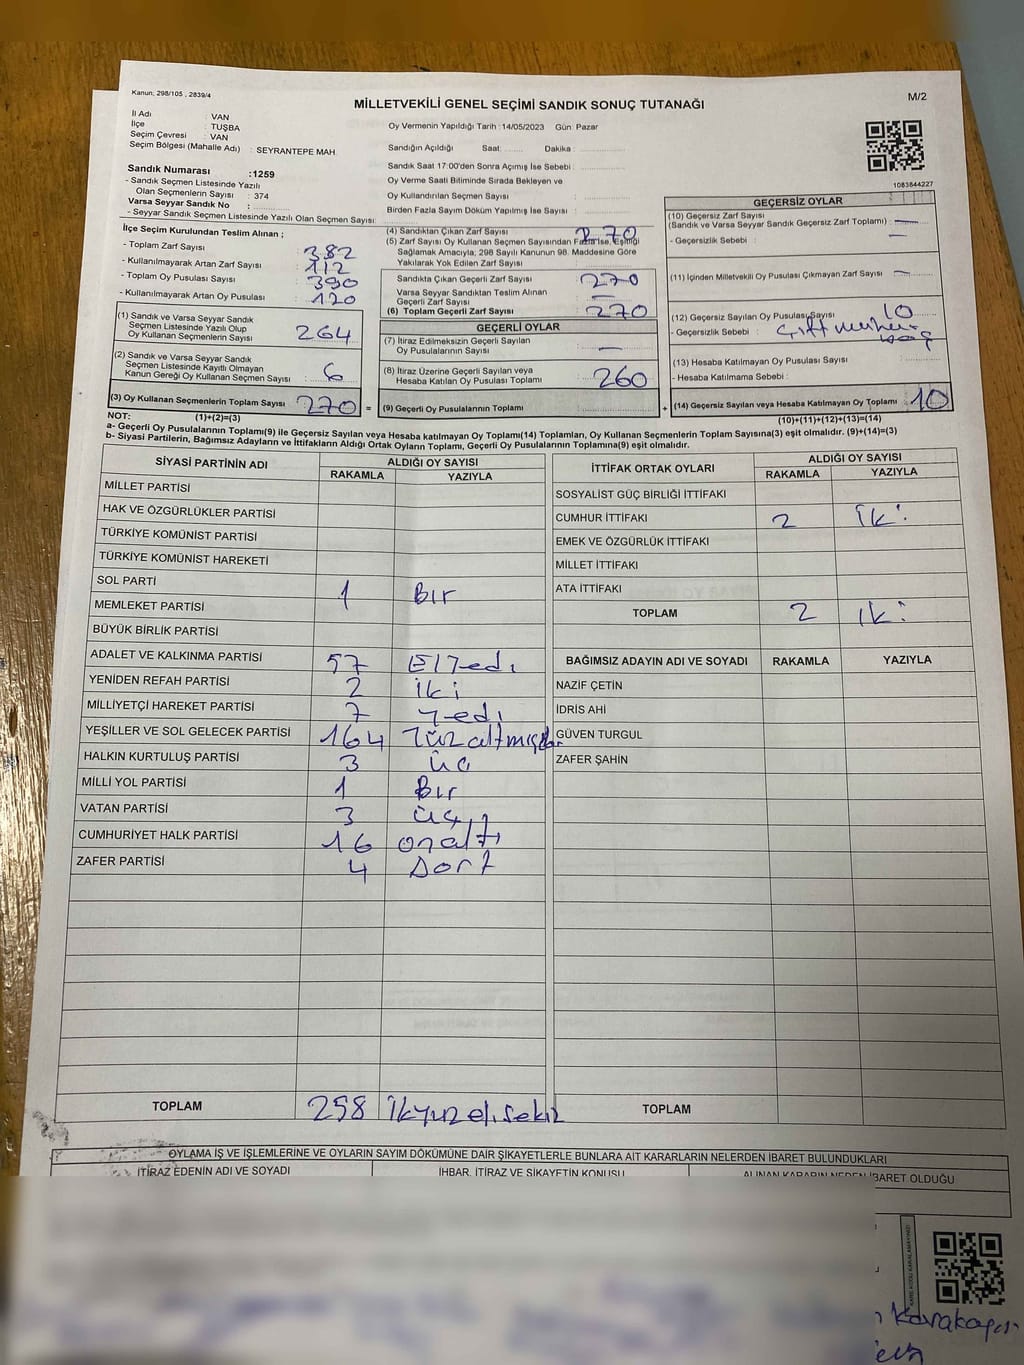 Kanun: 298/105 , 2839/4
MİLLETVEKİLİ GENEL SEÇİMİ SANDIK SONUÇ TUTANAĞI
M/2
İl Adı : VAN
İlçe : TUŞBA
Seçim Çevresi : VAN
Seçim Bölgesi (Mahalle Adı) : SEYRANTEPE MAH.
Sandık Numarası :1259
- Sandık Seçmen Listesinde Yazılı
Olan Seçmenlerin Sayısı : 374
Varsa Seyyar Sandık No :
- Seyyar Sandık Seçmen Listesinde Yazılı Olan Seçmen Sayısı:
Oy Vermenin Yapıldığı Tarih :14/05/2023 Gün: Pazar
Sandığın Açıldığı Saat: Dakika :
Sandık Saat 17:00'den Sonra Açımış İse Sebebi :
Oy Verme Saati Bitiminde Sırada Bekleyen ve
Oy Kullandırılan Seçmen Sayısı :
Birden Fazla Sayım Döküm Yapılmış İse Sayısı :
1083844227
İlçe Seçim Kurulundan Teslim Alınan ;
- Toplam Zarf Sayısı : 382
- Kullanılmayarak Artan Zarf Sayısı : 112
- Toplam Oy Pusulası Sayısı : 390
- Kullanılmayarak Artan Oy Pusulası : 120
(1) Sandık ve Varsa Seyyar Sandık
Seçmen Listesinde Yazılı Olup
Oy Kullanan Seçmen Sayısı : 264
(2) Sandık ve Varsa Seyyar Sandık
Seçmen Listesinde Kayıtlı Olmayan
Kanun Gereği Oy Kullanan Seçmen Sayısı : 6
(3) Oy Kullanan Seçmenlerin Toplam Sayısı : 270 =
(4) Sandıktan Çıkan Zarf Sayısı : 270
(5) Zarf Sayısı Oy Kullanan Seçmen Sayısından Fazla İse, Eşitliği
Sağlamak Amacıyla; 298 Sayılı Kanunun 98. Maddesine Göre
Yakılarak Yok Edilen Zarf Sayısı :
Sandıkta Çıkan Geçerli Zarf Sayısı : 270
Varsa Seyyar Sandıktan Teslim Alınan
Geçerli Zarf Sayısı : —
(6) Toplam Geçerli Zarf Sayısı : 270
GEÇERLİ OYLAR
(7) İtiraz Edilmeksizin Geçerli Sayılan
Oy Pusulalarının Sayısı : —
(8) İtiraz Üzerine Geçerli Sayılan veya
Hesaba Katılan Oy Pusulası Toplamı : 260
(9) Geçerli Oy Pusulalarının Toplamı : +
GEÇERSİZ OYLAR
(10) Geçersiz Zarf Sayısı
(Sandık ve Varsa Seyyar Sandık Geçersiz Zarf Toplamı) : —
- Geçersizlik Sebebi : —
(11) İçinden Milletvekili Oy Pusulası Çıkmayan Zarf Sayısı : —
(12) Geçersiz Sayılan Oy Pusulası Sayısı : 10
- Geçersizlik Sebebi : Çift
(13) Hesaba Katılmayan Oy Pusulası Sayısı :
- Hesaba Katılmama Sebebi :
(14) Geçersiz Sayılan veya Hesaba Katılmayan Oy Toplamı : 10
NOT: (1)+(2)=(3) (10)+(11)+(12)+(13)=(14)
a- Geçerli Oy Pusulalarının Toplamı(9) ile Geçersiz Sayılan veya Hesaba katılmayan Oy Toplamı(14) Toplamları, Oy Kullanan Seçmenlerin Toplam Sayısına(3) eşit olmalıdır. (9)+(14)=(3)
b- Siyasi Partilerin, Bağımsız Adayların ve İttifakların Aldığı Ortak Oyların Toplamı, Geçerli Oy Pusulalarının Toplamına(9) eşit olmalıdır.
SİYASİ PARTİNİN ADI ALDIĞI OY SAYISI
RAKAMLA YAZIYLA
MİLLET PARTİSİ
HAK VE ÖZGÜRLÜKLER PARTİSİ
TÜRKİYE KOMÜNİST PARTİSİ
TÜRKİYE KOMÜNİST HAREKETİ
SOL PARTİ 1 Bır
MEMLEKET PARTİSİ
BÜYÜK BİRLİK PARTİSİ
ADALET VE KALKINMA PARTİSİ 57
YENİDEN REFAH PARTİSİ 2 iki
MİLLİYETÇİ HAREKET PARTİSİ 7 yedi
YEŞİLLER VE SOL GELECEK PARTİSİ 164
HALKIN KURTULUŞ PARTİSİ 3 üç
MİLLİ YOL PARTİSİ 1 Bır
VATAN PARTİSİ 3 üç
CUMHURİYET HALK PARTİSİ 16 onaltı
ZAFER PARTİSİ 4 Dört
TOPLAM 258
İTTİFAK ORTAK OYLARI ALDIĞI OY SAYISI
RAKAMLA YAZIYLA
SOSYALİST GÜÇ BİRLİĞİ İTTİFAKI
CUMHUR İTTİFAKI 2 iki
EMEK VE ÖZGÜRLÜK İTTİFAKI
MİLLET İTTİFAKI
ATA İTTİFAKI
TOPLAM 2 iki
BAĞIMSIZ ADAYIN ADI VE SOYADI RAKAMLA YAZIYLA
NAZİF ÇETİN
İDRİS AHİ
GÜVEN TURGUL
ZAFER ŞAHİN
TOPLAM
OYLAMA İŞ VE İŞLEMLERİNE VE OYLARIN SAYIM DÖKÜMÜNE DAİR ŞİKAYETLERLE BUNLARA AİT KARARLARIN NELERDEN İBARET BULUNDUKLARI
İTİRAZ EDENİN ADI VE SOYADI İHBAR, İTİRAZ VE ŞİKAYETİN KONUSU ALINAN KARARIN NEDEN İBARET OLDUĞU